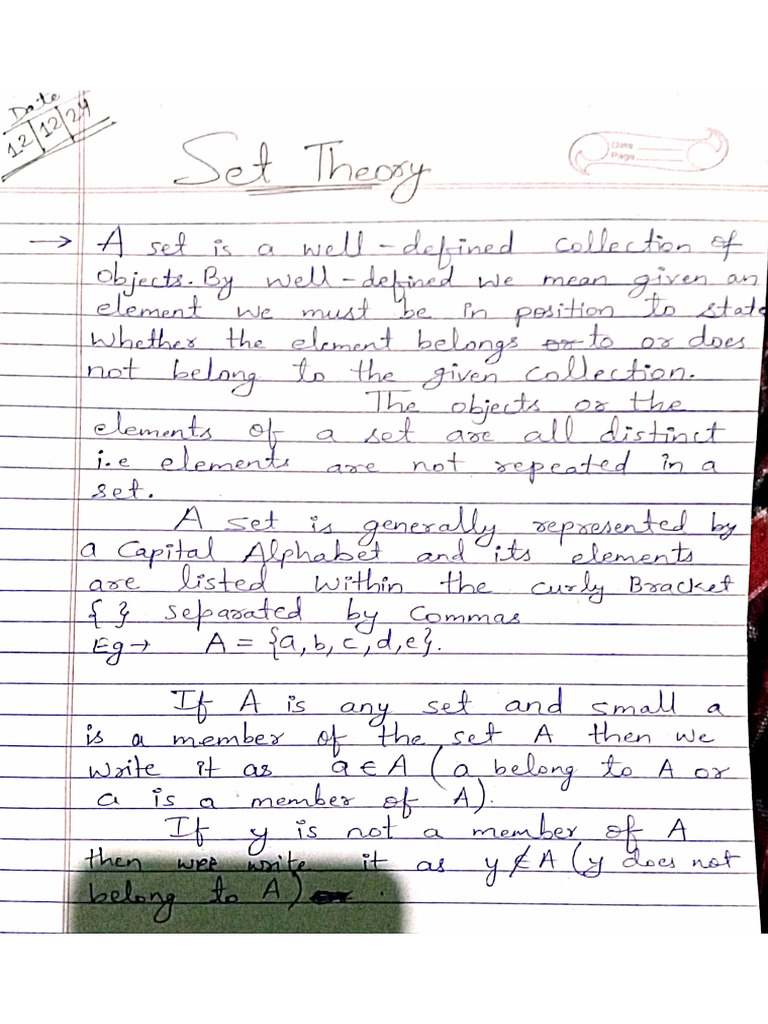 Date
12/12/24
Set Theory
Date
Page
→ A set is a well-defined collection of
objects. By well-defined we mean given an
element we must be in position to state
whether the element belongs or to or does
not belong to the given collection.
The objects or the
elements of a set are all distinct
i.e elements are not repeated in a
set.
A set is generally represented by
a Capital Alphabet and its elements
are listed within the curly Bracket
{ } separated by Commas
Eg → A = {a, b, c, d, e}.
If A is any set and small a
is a member of the set A then we
write it as a ∈ A (a belong to A or
a is a member of A).
If y is not a member of A
then wee write it as y ∉ A (y does not
belong to A) .